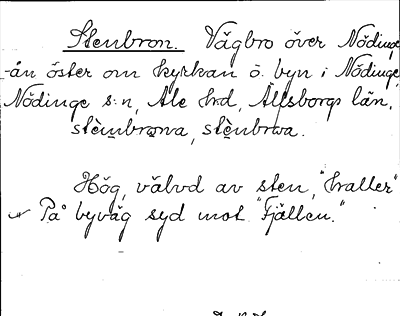 Stenbron. Vägbro över Nödinge
-ån öster om kyrkan ö. byn i Nödinge,
Nödinge s:n, Ale hrd, Älfsborgs län.
Hög, välvd av sten, "hraller"
På byväg syd mot "Fjällen."